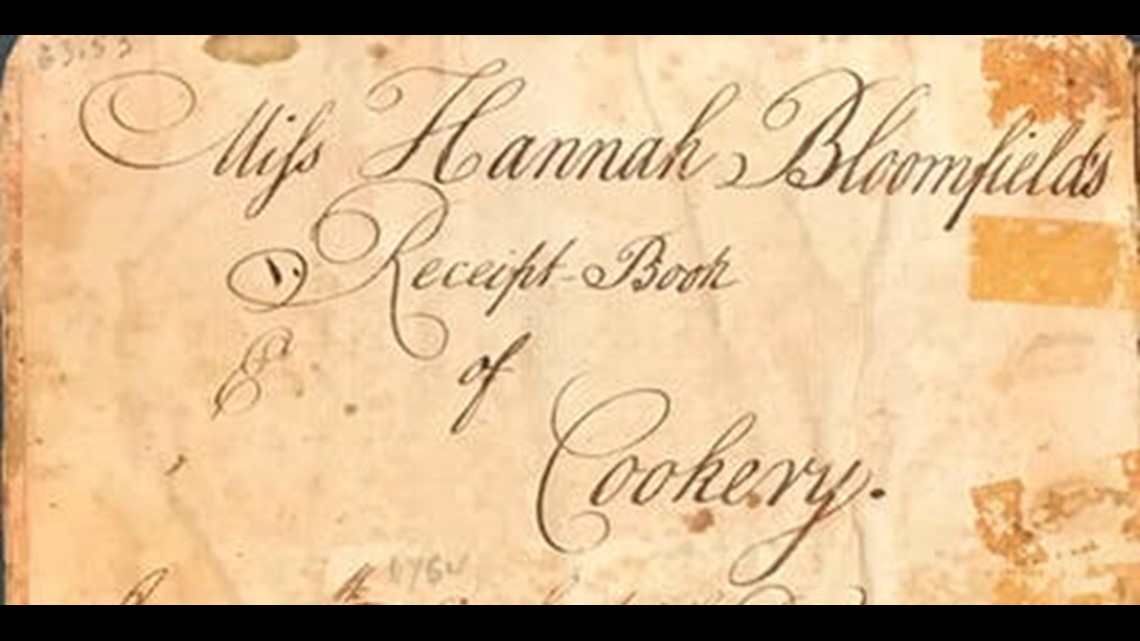 Miſs Hannah Bloomfield's
Receipt Book
of
Cookery.